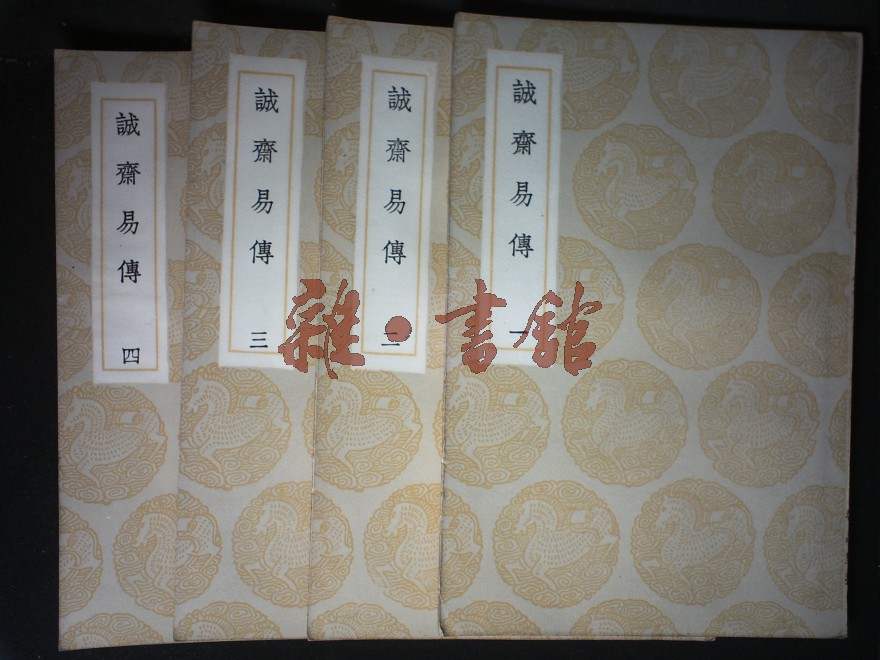 誠齋易傳 一
誠齋易傳 二
誠齋易傳 三
誠齋易傳 四
雜·書館